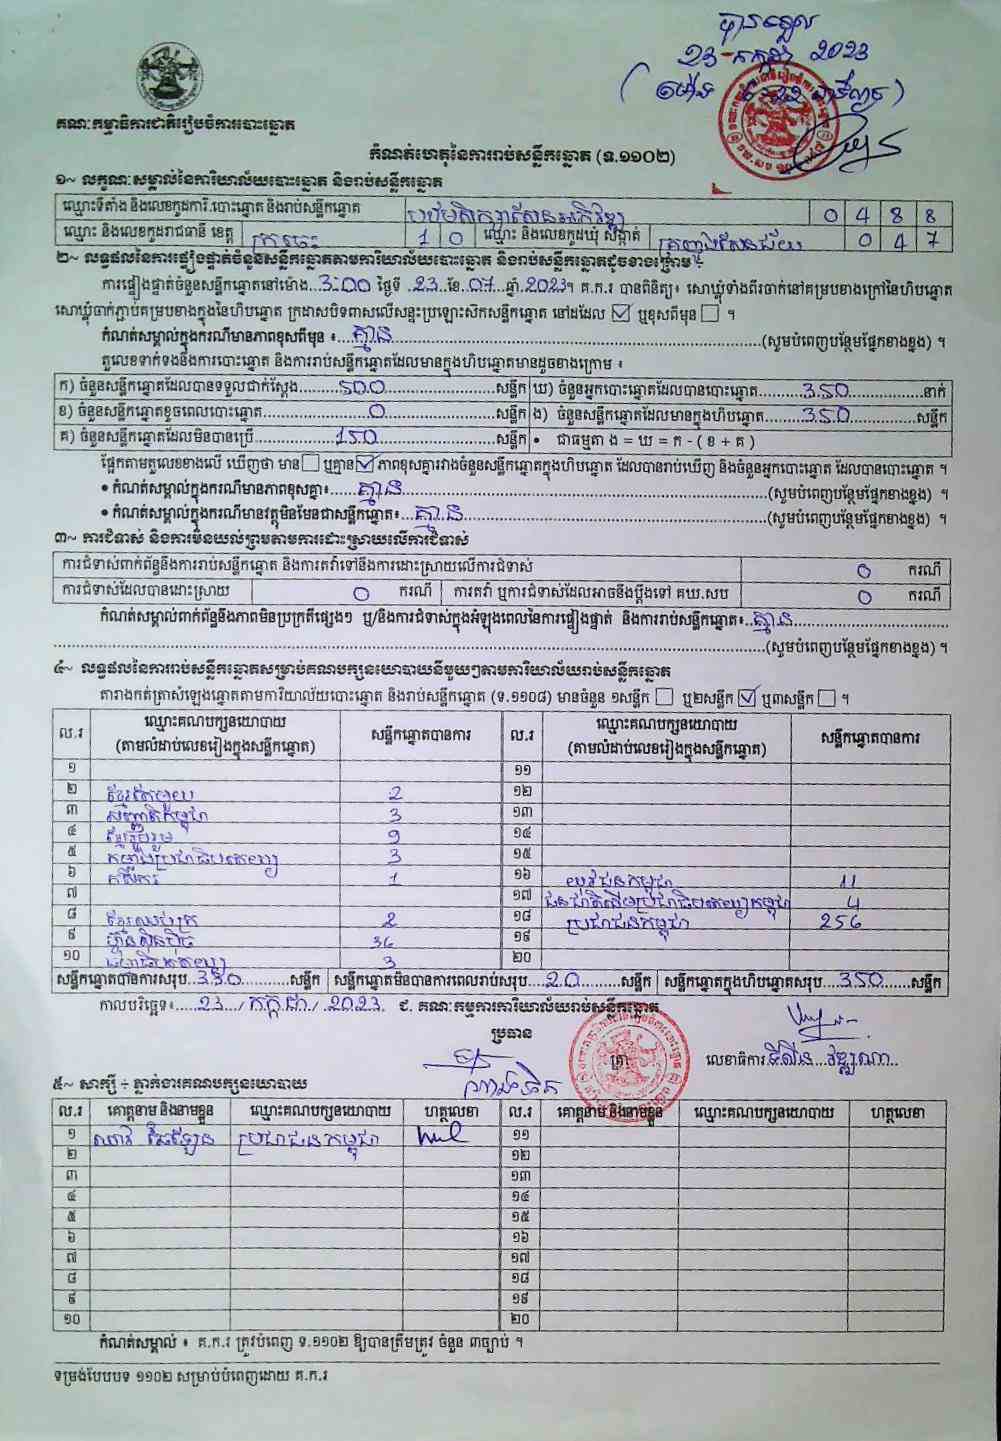 បានឃើញ
23-កក្កដា 2023
គណៈកម្មាធិការជាតិរៀបចំការបោះឆ្នោត
កំណត់ហេតុនៃការរាប់សន្លឹកឆ្នោត (ទ.១១០២)
១~ លក្ខណៈសម្គាល់នៃការិយាល័យបោះឆ្នោត និងរាប់សន្លឹកឆ្នោត
ឈ្មោះទីតាំង និងលេខកូដការិ.បោះឆ្នោត និងរាប់សន្លឹកឆ្នោត 0 4 8 8
ឈ្មោះ និងលេខកូដរាជធានី ខេត្ត ក្រចេះ 1 0 ឈ្មោះ និងលេខកូដឃុំ សង្កាត់ 0 4 7
២~ លទ្ធផលនៃការផ្ទៀងផ្ទាត់ចំនួនសន្លឹកឆ្នោតតាមការិយាល័យបោះឆ្នោត និងរាប់សន្លឹកឆ្នោតដូចខាងក្រោម ÷
ការផ្ទៀងផ្ទាត់ចំនួនសន្លឹកឆ្នោតនៅម៉ោង..3:00 ថ្ងៃទី .23..ខែ.07..ឆ្នាំ.2023។ គ.ក.រ បានពិនិត្យ៖ សោឃ្លុំទាំងពីរចាក់នៅគម្របខាងក្រៅនៃហិបឆ្នោត
សោឃ្លុំចាក់ភ្ជាប់គម្របខាងក្នុងនៃហិបឆ្នោត ក្រដាសបិទពាសលើសន្ទះប្រឡោះសិកសន្លឹកឆ្នោត នៅដដែល ☑ ឬខុសពីមុន ☐ ។
កំណត់សម្គាល់ក្នុងករណីមានភាពខុសពីមុន ៖...គ្មាន...(សូមបំពេញបន្ថែមផ្នែកខាងខ្នង) ។
តួលេខទាក់ទងនឹងការបោះឆ្នោត និងការរាប់សន្លឹកឆ្នោតដែលមានក្នុងហិបឆ្នោតមានដូចខាងក្រោម ៖
ក) ចំនួនសន្លឹកឆ្នោតដែលបានទទួលជាក់ស្តែង.........500.........សន្លឹក ឃ) ចំនួនអ្នកបោះឆ្នោតដែលបានបោះឆ្នោត.........350.........នាក់
ខ) ចំនួនសន្លឹកឆ្នោតខូចពេលបោះឆ្នោត.........0.........សន្លឹក ង) ចំនួនសន្លឹកឆ្នោតដែលមានក្នុងហិបឆ្នោត.........350.........សន្លឹក
គ) ចំនួនសន្លឹកឆ្នោតដែលមិនបានប្រើ.........150.........សន្លឹក • ជាធម្មតា ង = ឃ = ក - ( ខ + គ )
ផ្អែកតាមតួលេខខាងលើ ឃើញថា មាន ☐ ឬគ្មាន ☑ ភាពខុសគ្នារវាងចំនួនសន្លឹកឆ្នោតក្នុងហិបឆ្នោត ដែលបានរាប់ឃើញ និងចំនួនអ្នកបោះឆ្នោត ដែលបានបោះឆ្នោត ។
• កំណត់សម្គាល់ក្នុងករណីមានភាពខុសគ្នា៖......គ្មាន......(សូមបំពេញបន្ថែមផ្នែកខាងខ្នង) ។
• កំណត់សម្គាល់ក្នុងករណីមានវត្ថុមិនមែនជាសន្លឹកឆ្នោត៖..គ្មាន......(សូមបំពេញបន្ថែមផ្នែកខាងខ្នង) ។
៣~ ការជំទាស់ និងការមិនយល់ព្រមតាមការដោះស្រាយលើការជំទាស់
ការជំទាស់ពាក់ព័ន្ធនឹងការរាប់សន្លឹកឆ្នោត និងការតវ៉ាទៅនឹងការដោះស្រាយលើការជំទាស់ 0 ករណី
ការជំទាស់ដែលបានដោះស្រាយ 0 ករណី ការតវ៉ា ឬការជំទាស់ដែលអាចនឹងប្តឹងទៅ គឃ.សប 0 ករណី
កំណត់សម្គាល់ពាក់ព័ន្ធនឹងភាពមិនប្រក្រតីផ្សេងៗ ឬ/និងការជំទាស់ក្នុងអំឡុងពេលនៃការផ្ទៀងផ្ទាត់ និងការរាប់សន្លឹកឆ្នោត៖..គ្មាន......
......(សូមបំពេញបន្ថែមផ្នែកខាងខ្នង) ។
៤~ លទ្ធផលនៃការរាប់សន្លឹកឆ្នោតសម្រាប់គណបក្សនយោបាយនីមួយៗតាមការិយាល័យរាប់សន្លឹកឆ្នោត
តារាងកត់ត្រាសំឡេងឆ្នោតតាមការិយាល័យបោះឆ្នោត និងរាប់សន្លឹកឆ្នោត (ទ.១១០៨) មានចំនួន ១សន្លឹក ☐ ឬ២សន្លឹក ☑ ឬ៣សន្លឹក ☐ ។
ល.រ ឈ្មោះគណបក្សនយោបាយ (តាមលំដាប់លេខរៀងក្នុងសន្លឹកឆ្នោត) សន្លឹកឆ្នោតបានការ ល.រ ឈ្មោះគណបក្សនយោបាយ (តាមលំដាប់លេខរៀងក្នុងសន្លឹកឆ្នោត) សន្លឹកឆ្នោតបានការ
១ ១១
២ ខ្មែរតែមួយ 2 ១២
៣ សញ្ជាតិកម្ពុជា 3 ១៣
៤ ខ្មែររួបរួម 9 ១៤
៥ កម្លាំងប្រជាធិបតេយ្យ 3 ១៥
៦ កសិករ 1 ១៦ យុវជនកម្ពុជា 11
៧ ១៧ ជនជាតិដើមប្រជាធិបតេយ្យកម្ពុជា 4
៨ 2 ១៨ ប្រជាជនកម្ពុជា 256
៩ ហ៊្វុនស៊ិនប៉ិច 36 ១៩
១០ 3 ២០
សន្លឹកឆ្នោតបានការសរុប 330.........សន្លឹក សន្លឹកឆ្នោតមិនបានការពេលរាប់សរុប...20.........សន្លឹក សន្លឹកឆ្នោតក្នុងហិបឆ្នោតសរុប...350......សន្លឹក
កាលបរិច្ឆេទ៖.....23.../ កក្កដា / 2023. ជ. គណៈកម្មការការិយាល័យរាប់សន្លឹកឆ្នោត
ប្រធាន
ត្រា លេខាធិការ
៥~ សាក្សី ÷ ភ្នាក់ងារគណបក្សនយោបាយ
ល.រ គោត្តនាម និងនាមខ្លួន ឈ្មោះគណបក្សនយោបាយ ហត្ថលេខា ល.រ គោត្តនាម និងនាមខ្លួន ឈ្មោះគណបក្សនយោបាយ ហត្ថលេខា
១ ប្រជាជនកម្ពុជា ១១
២ ១២
៣ ១៣
៤ ១៤
៥ ១៥
៦ ១៦
៧ ១៧
៨ ១៨
៩ ១៩
១០ ២០
កំណត់សម្គាល់ ៖ គ.ក.រ ត្រូវបំពេញ ទ.១១០២ ឱ្យបានត្រឹមត្រូវ ចំនួន ៣ច្បាប់ ។
ទម្រង់បែបបទ ១១០២ សម្រាប់បំពេញដោយ គ.ក.រ